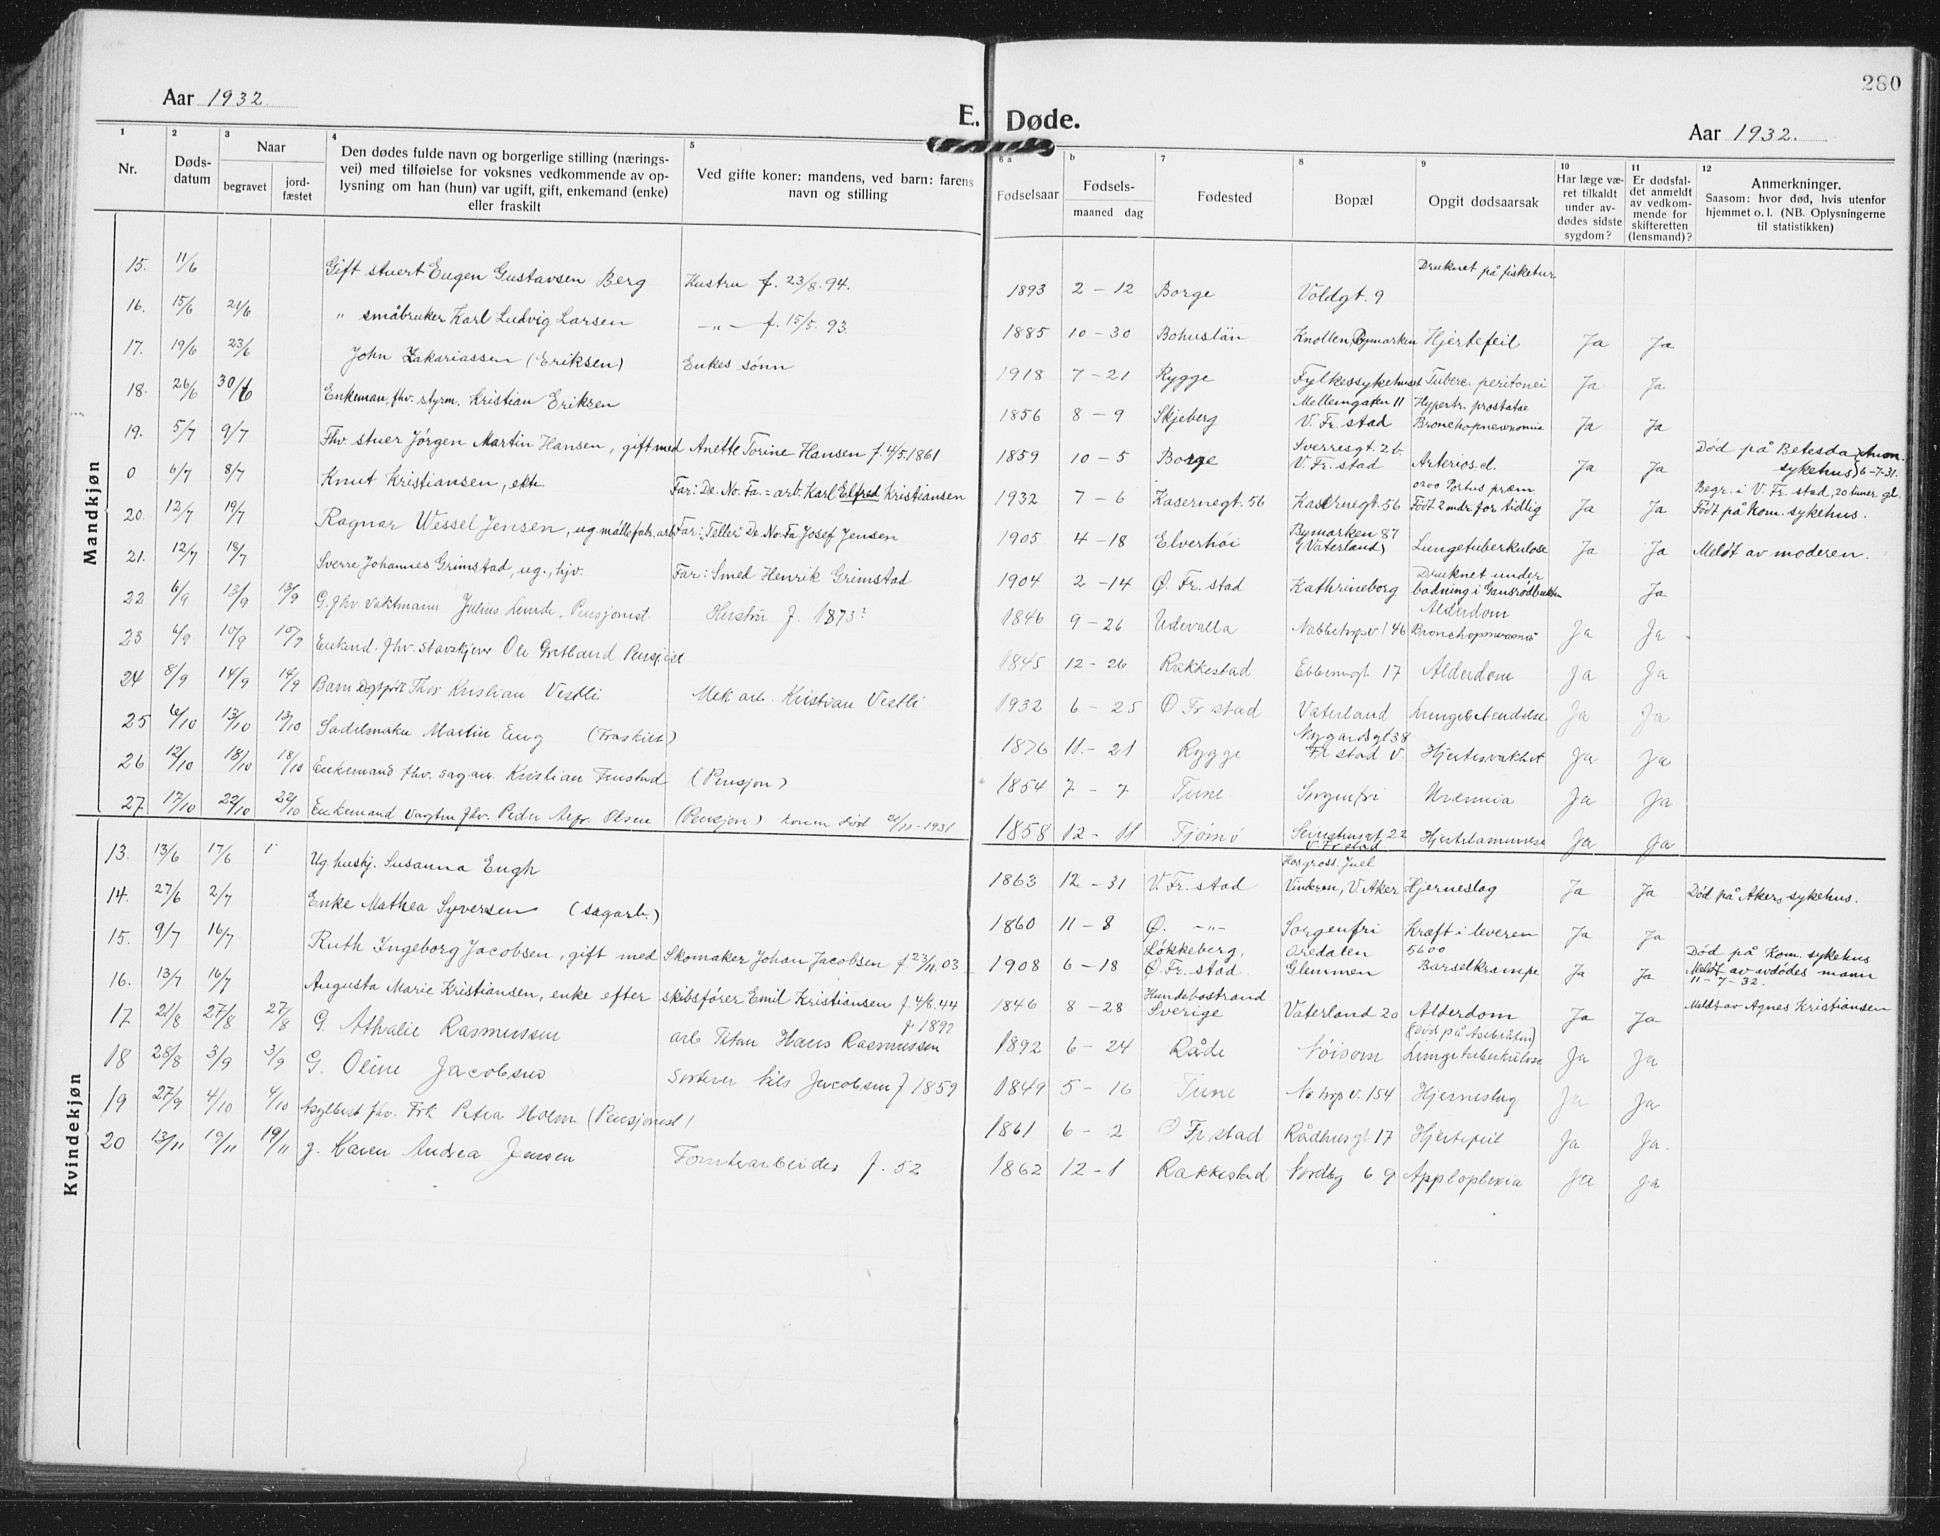 280
Aar 1932.
E. Døde.
Aar 1932.
1 Nr.
2 Døds-datum
3 Naar begravet jord-fæstet
4 Den dødes fulde navn og borgerlige stilling (nærings-vei) med tilføielse for voksnes vedkommende av op-lysning om han (hun) var ugift, gift, enkemand (enke) eller fraskilt
5 Ved gifte koner: mandens, ved barn: farens navn og stilling
6 a Fødselsaar
b Fødsels- maaned dag
7 Fødested
8 Bopæl
9 Opgit dødsaarsak
10 Har læge væ-ret tilkaldt under av-dødes sidste sygdom?
11 Er dødsfal-det anmeldt av vedkom-mende for skifteretten (lensmand)?
12 Anmerkninger. Saasom: hvor død, hvis utenfor hjemmet o. l. (NB. Oplysningerne til statistikken)
Mandkjøn
15. 11/6 Gift stuert Eugen Gustavsen Berg Hustru f. 23/8.94. 1893 2-12 Borge Voldgt. 9 Druknet på fisketur
16. 15/6 21/6 " småbruker Karl Ludvig Larsen -"- f. 15/5.93. 1885 10-30 Bohuslän Knollen, Bymarken Hjertefeil Ja Ja
17. 19/6 23/6 John Zakariassen (Eriksen) Enkes sønn 1918 7-21 Rygge Fylkessykehuset Tuberc. peritonei Ja Ja
18. 26/6 30/6 Enkeman, fhv. styrm. Kristian Eriksen 1856 8-9 Skjeberg Mellemgaten 11 V. Fr. stad Hypertr. prostatae Bronchopneumonia Ja Ja
19. 5/7 9/7 Fhv. stuer Jørgen Martin Hansen, gift med Anette Torine Hansen f. 4/5.1861 1859 10-5 Borge Sverresgt. 2b. V. Fr. stad Arterioscl. Ja Ja Død på Betesda sykehus 6-7-31.
0 6/7 8/7 Knut Kristiansen, ekte Far: De. No. Fa. = arb. Karl Elfred Kristiansen 1932 7-6 Kasernegt. 56 Kasernegt. 56 Partus præm Født 2 mdr for tidlig Ja Ja Begr. i V. Fr. stad, 20 timer gl. Født på Kom. sykehus.
20. 12/7 19/7 Ragnar Wessel Jensen, ug. Far: "Teller" De. No. Fa Josef Jensen 1905 4-18 Elverhöi Bymarken 87 (Vaterland) Lungetuberkulose Ja Ja Meldt av moderen.
21. 12/7 18/7 Sverre Johannes Grimstad, ug., hjv. Far: Smed Henrik Grimstad 1904 2-14 Ø. Fr. stad Kathrineborg Druknet under badning i Gansrødbukten Ja
22 6/9 13/9 13/9 G. fhv. vaktmann Julius Lunde, Pensjonist. Hustru f. 1873? 1846 9-26 Udevalla 146 Alderdom Bronchopneumonia Ja Ja
23 6/9 10/9 10/9 Enkmd. fhv. Ole Pensjonist 1845 12-26 Rakkestad 17 Alderdom Ja Ja
24 8/9 14/9 14/9 Barn Thor Kristian Vestli Mek arb. Kristian Vestli 1932 6-25 Ø Fr stad Vaterland Lungebetendelse Ja Ja
25 6/10 13/10 13/10 Sadelmaker Martin Eng (Fraskilt) 1876 11-21 Rygge Nygardsgt 38 Fr stad V. Hjertesvakhet Ja Ja
26 12/10 18/10 18/10 Enkemand fhv. sagarb. Kristian (Pensjon) 1854 7-7 Tune Sorgenfri Uremia Ja Ja
27 17/10 22/10 22/10 Enkemand fhv. Peder Olsen (Pensjon) konen død 1931 1858 12-11 Tjømø 22 V. Fr stad Hjertelammelse Ja Ja
Kvindekjøn
13. 13/6 17/6 Ug. hushj. Susanna Engh 1863 12-31 V. Fr. stad Hos gross. Juel Vinderen, V. Aker Hjerneslag Ja Ja Død på Akers sykehus.
14. 27/6 2/7 Enke Mathea Syversen (sagarb.) 1860 11-8 Ø. -"- Sorgenfri Kræft i leveren Ja Ja
15. 9/7 16/7 Ruth Ingeborg Jacobsen, gift med Skomaker Johan Jacobsen f. 23/11.03 1908 6-18 Løkkeberg, Ø. Fr. stad. Aredalen Glemmen 5600 Barselkrampe Ja Ja Død på Kom. sykehus Meldt av avdødes mann 11-7-32.
16. 13/7 16/7 Augusta Marie Kristiansen, enke efter skibsfører Emil Kristiansen f. 4/8.44 1846 8-28 Hundebostrand Sverige Vaterland 20 Alderdom Ja Ja Meldt av Agnes Kristiansen
17 21/8 27/8 27/8 G. Athalie Rasmussen arb Titan Hans Rasmussen 1892 6-24 Råde Nöisom Lungetuberkulose Ja Ja
18 28/8 3/9 3/9 G. Oline Jacobsen Nils Jacobsen f 1859 1849 5-16 Tune 154 Hjerneslag Ja Ja
19 27/9 4/10 4/10 fhv. Frk Petra Holm (Pensjonist) 1861 6-2 Ø Fr stad Rådhusgt 17 Hjertefeil Ja Ja.
20 13/11 19/11 19/11 g. Karen Andrea Jensen f. 52 1862 12-1 Rakkestad 69 Apploplexia Ja Ja